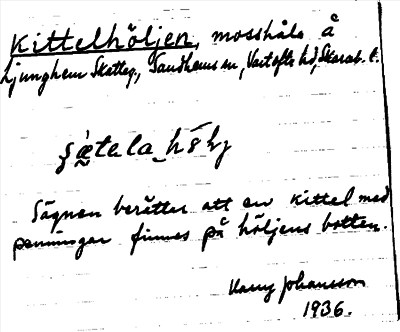 Kittelhöljen, mosshåla å
Ljunghem Skattег., Sandhems sn, Vartofta hd, Skarab. l.
Sägnen berättar att en kittel med
penningar finnes på höljens botten.
Harry Johansson
1936.